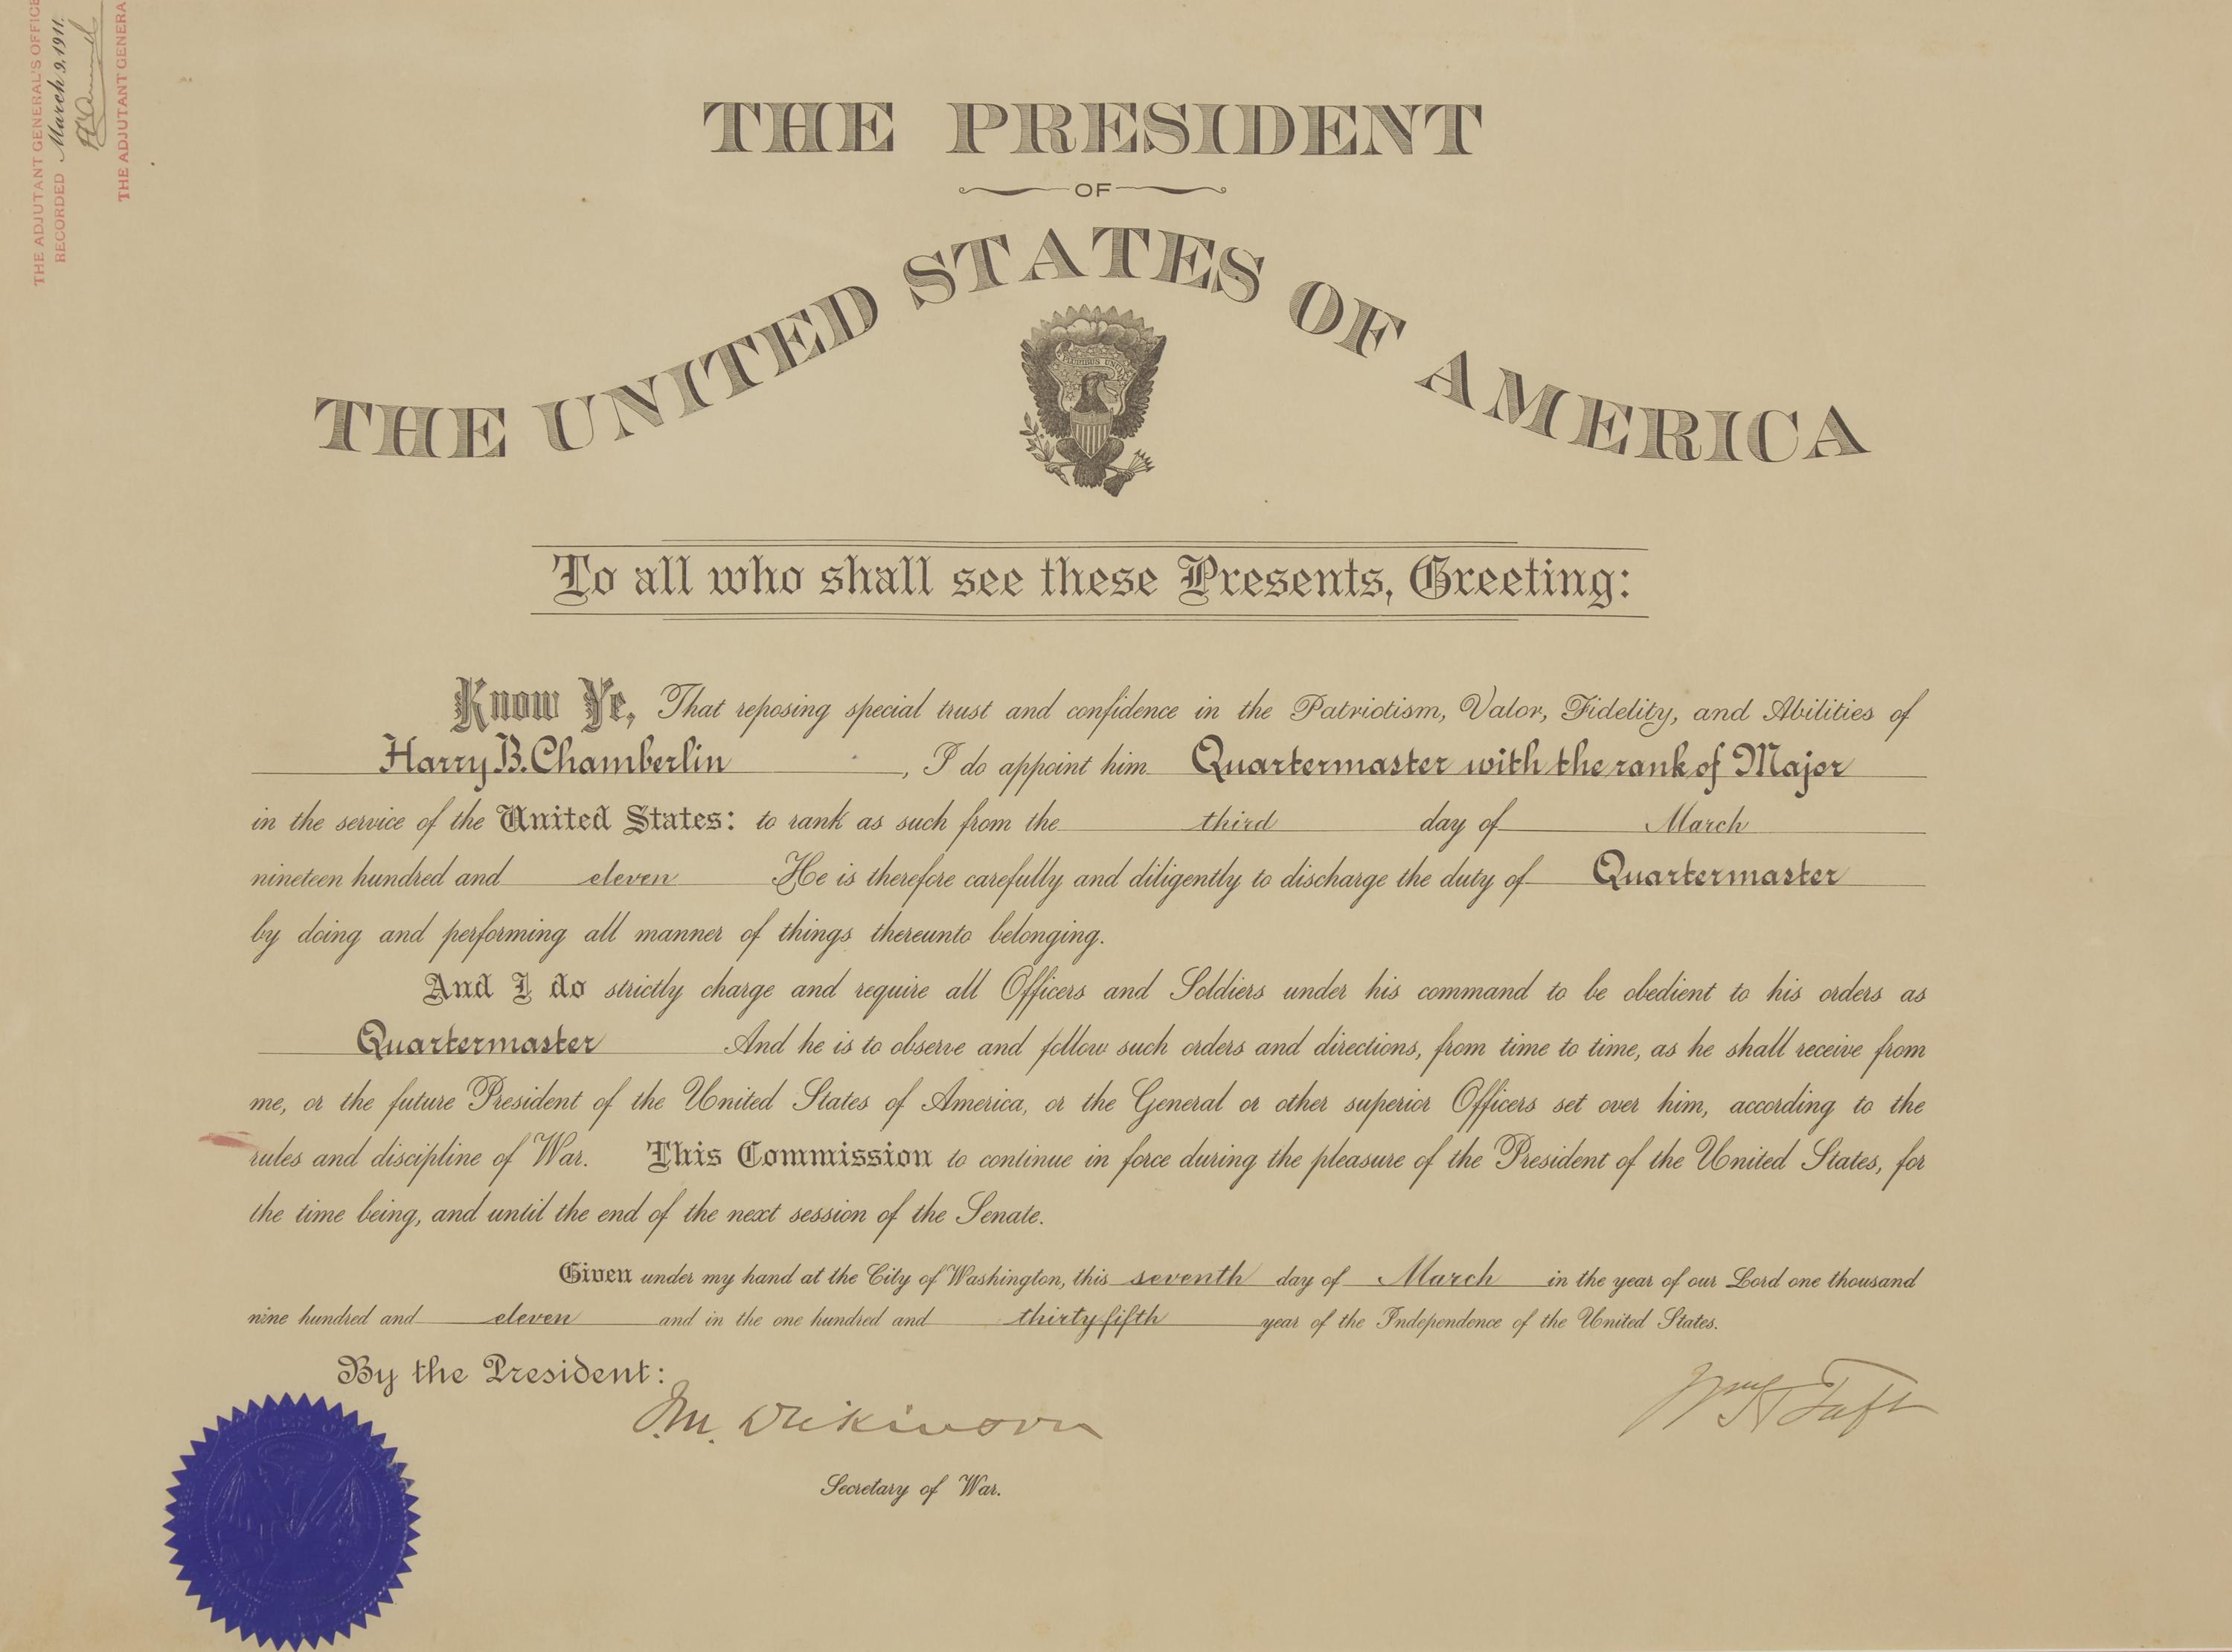 THE ADJUTANT GENERAL'S OFFICE
RECORDED March 9, 1911.
THE ADJUTANT GENERA
THE PRESIDENT
OF
THE UNITED STATES OF AMERICA
To all who shall see these Presents, Greeting:
Know Ye, That reposing special trust and confidence in the Patriotism, Valor, Fidelity, and Abilities of
Harry B. Chamberlin, I do appoint him Quartermaster with the rank of Major
in the service of the United States: to rank as such from the third day of March
nineteen hundred and eleven He is therefore carefully and diligently to discharge the duty of Quartermaster
by doing and performing all manner of things thereunto belonging.
And I do strictly charge and require all Officers and Soldiers under his command to be obedient to his orders as
Quartermaster And he is to observe and follow such orders and directions, from time to time, as he shall receive from
me, or the future President of the United States of America, or the General or other superior Officers set over him, according to the
rules and discipline of War. This Commission to continue in force during the pleasure of the President of the United States, for
the time being, and until the end of the next session of the Senate.
Given under my hand at the City of Washington, this seventh day of March in the year of our Lord one thousand
nine hundred and eleven and in the one hundred and thirty-fifth year of the Independence of the United States.
By the President:
Wm H Taft
J. M. Dickinson
Secretary of War.